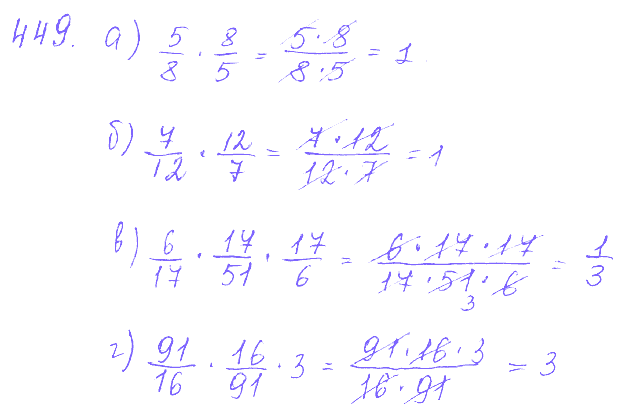 449. а) 5/8 · 8/5 = 5·8/8·5 = 1
б) 7/12 · 12/7 = 7·12/12·7 = 1
в) 6/17 · 17/51 · 17/6 = 6·17·17/17·51·6 = 1/3
3
г) 91/16 · 16/91 · 3 = 91·16·3/16·91 = 3